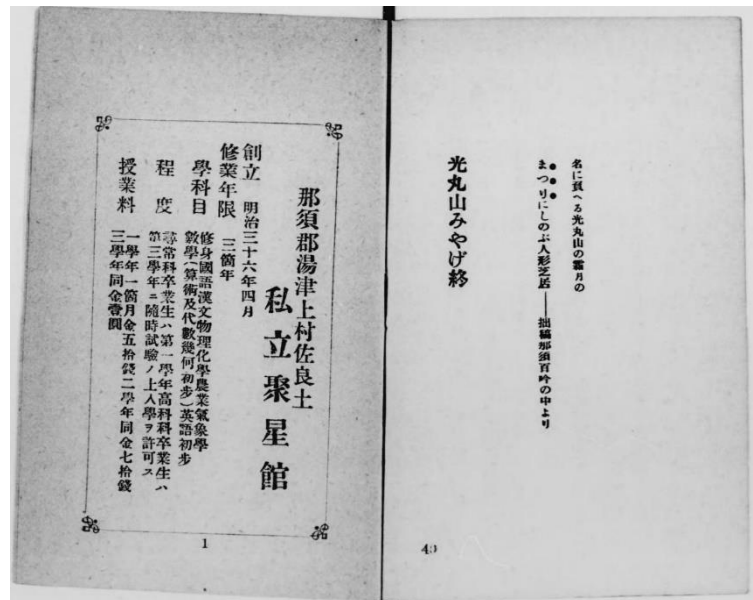 名に負へる光丸山の霜月の
まつりにしのぶ人形芝居――拙稿那須百吟の中より
光丸山みやげ終
49
那須郡湯津上村佐良土
私立聚星館
創立 明治三十六年四月
修業年限 三箇年
學科目 修身國語漢文物理化學農業氣象學
數學(算術及代數幾何初步)英語初步
程度 尋常科卒業生ハ第一學年高科科卒業生ハ
第三學年ニ隨時試驗ノ上入學ヲ許可ス
授業料 一學年一箇月金五拾錢二學年同金七拾錢
三學年同金壹圓
1